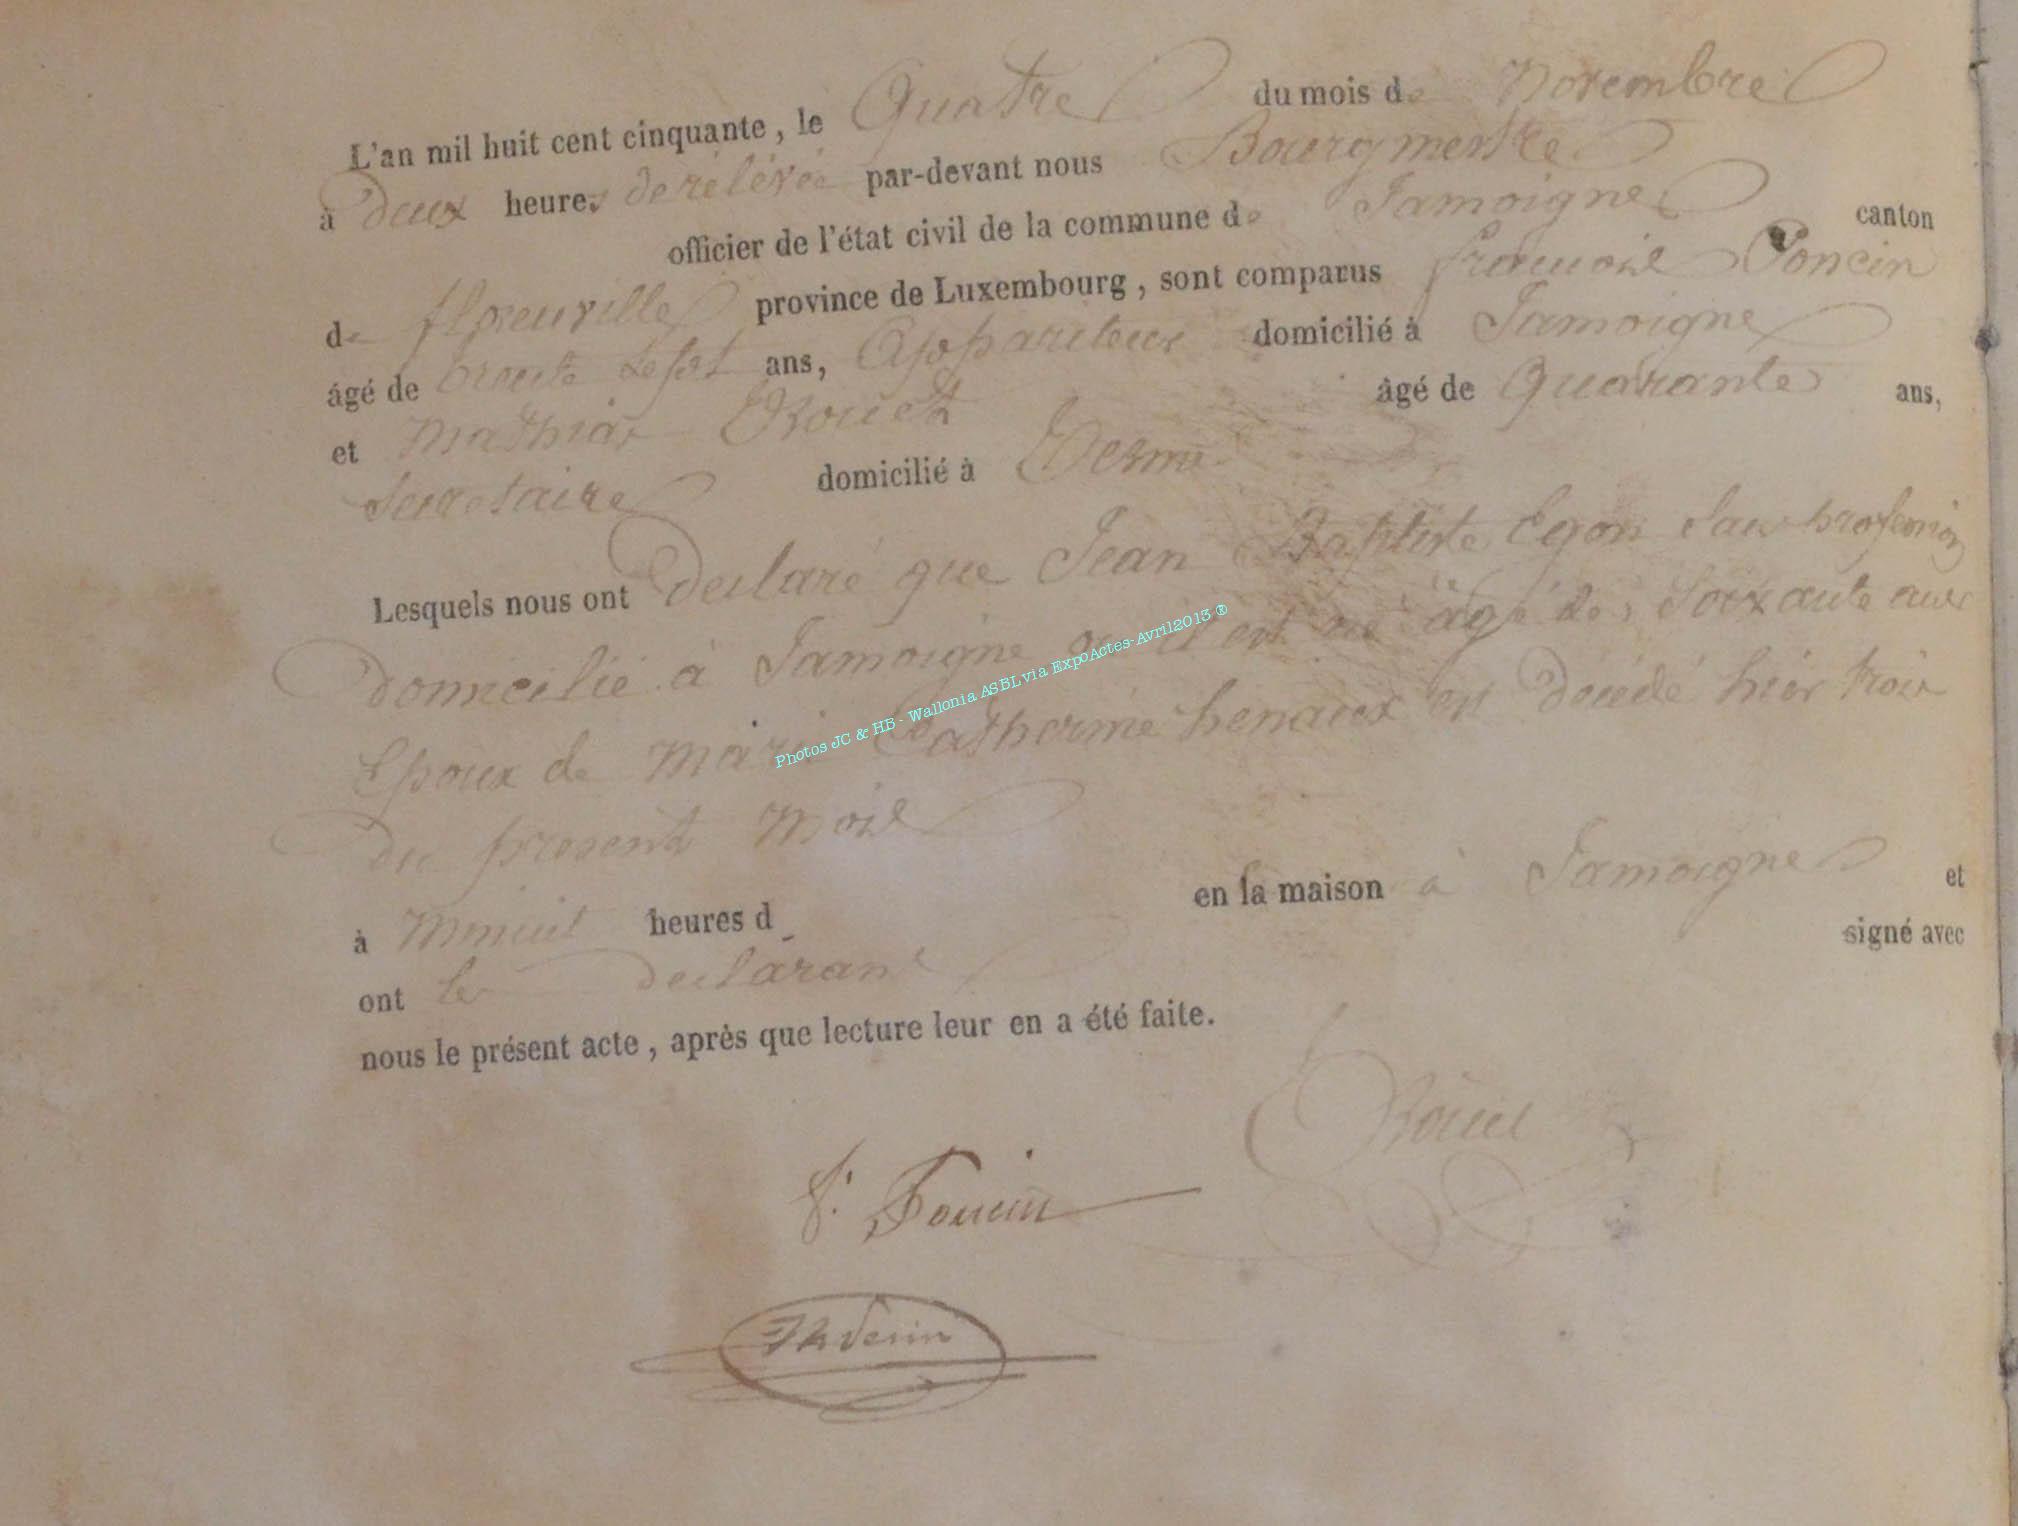 L'an mil huit cent cinquante, le Quatre du mois de Novembre
à deux heures de rélévée par-devant nous Bourgmestre
officier de l'état civil de la commune de Jamoigne canton
de florenville province de Luxembourg, sont comparus françois Poncin
âgé de trente sept ans, Appariteur domicilié à Jamoigne
et Mathias Rouet âgé de Quarante ans,
Secretaire domicilié à Termes
Lesquels nous ont declaré que Jean Baptiste sans profession
domicilié à Jamoigne où il est né âgé de soixante ans
Epoux de Marie Catherine henaux est décédé hier trois
du present mois
à Minuit heures d en la maison à Jamoigne et
ont les declarant signé avec
nous le présent acte, après que lecture leur en a été faite.
Rouet
f. Poncin
Photos JC & HB - Wallonia ASBL via ExpoActes-Avril2013 ®